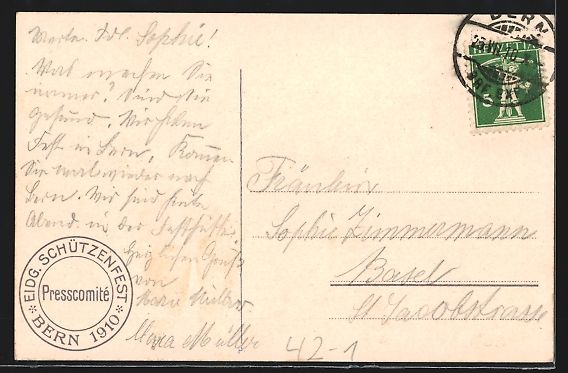 Werte Frl. Sophie!
Was machen Sie
immer? Sind Sie
gesund. Wir haben
Fest in Bern, Kommen
Sie mal wieder nach
Bern. Wir sind heute
Abend in der Festhütte
Herzlichen Gruss
von
Marie Müller
Müller
EIDG. SCHÜTZENFEST
Presscomité
BERN 1910
BERN
HELVETIA
Fräulein
Sophie Zimmermann
Basel
St Jacobstrasse
42-1